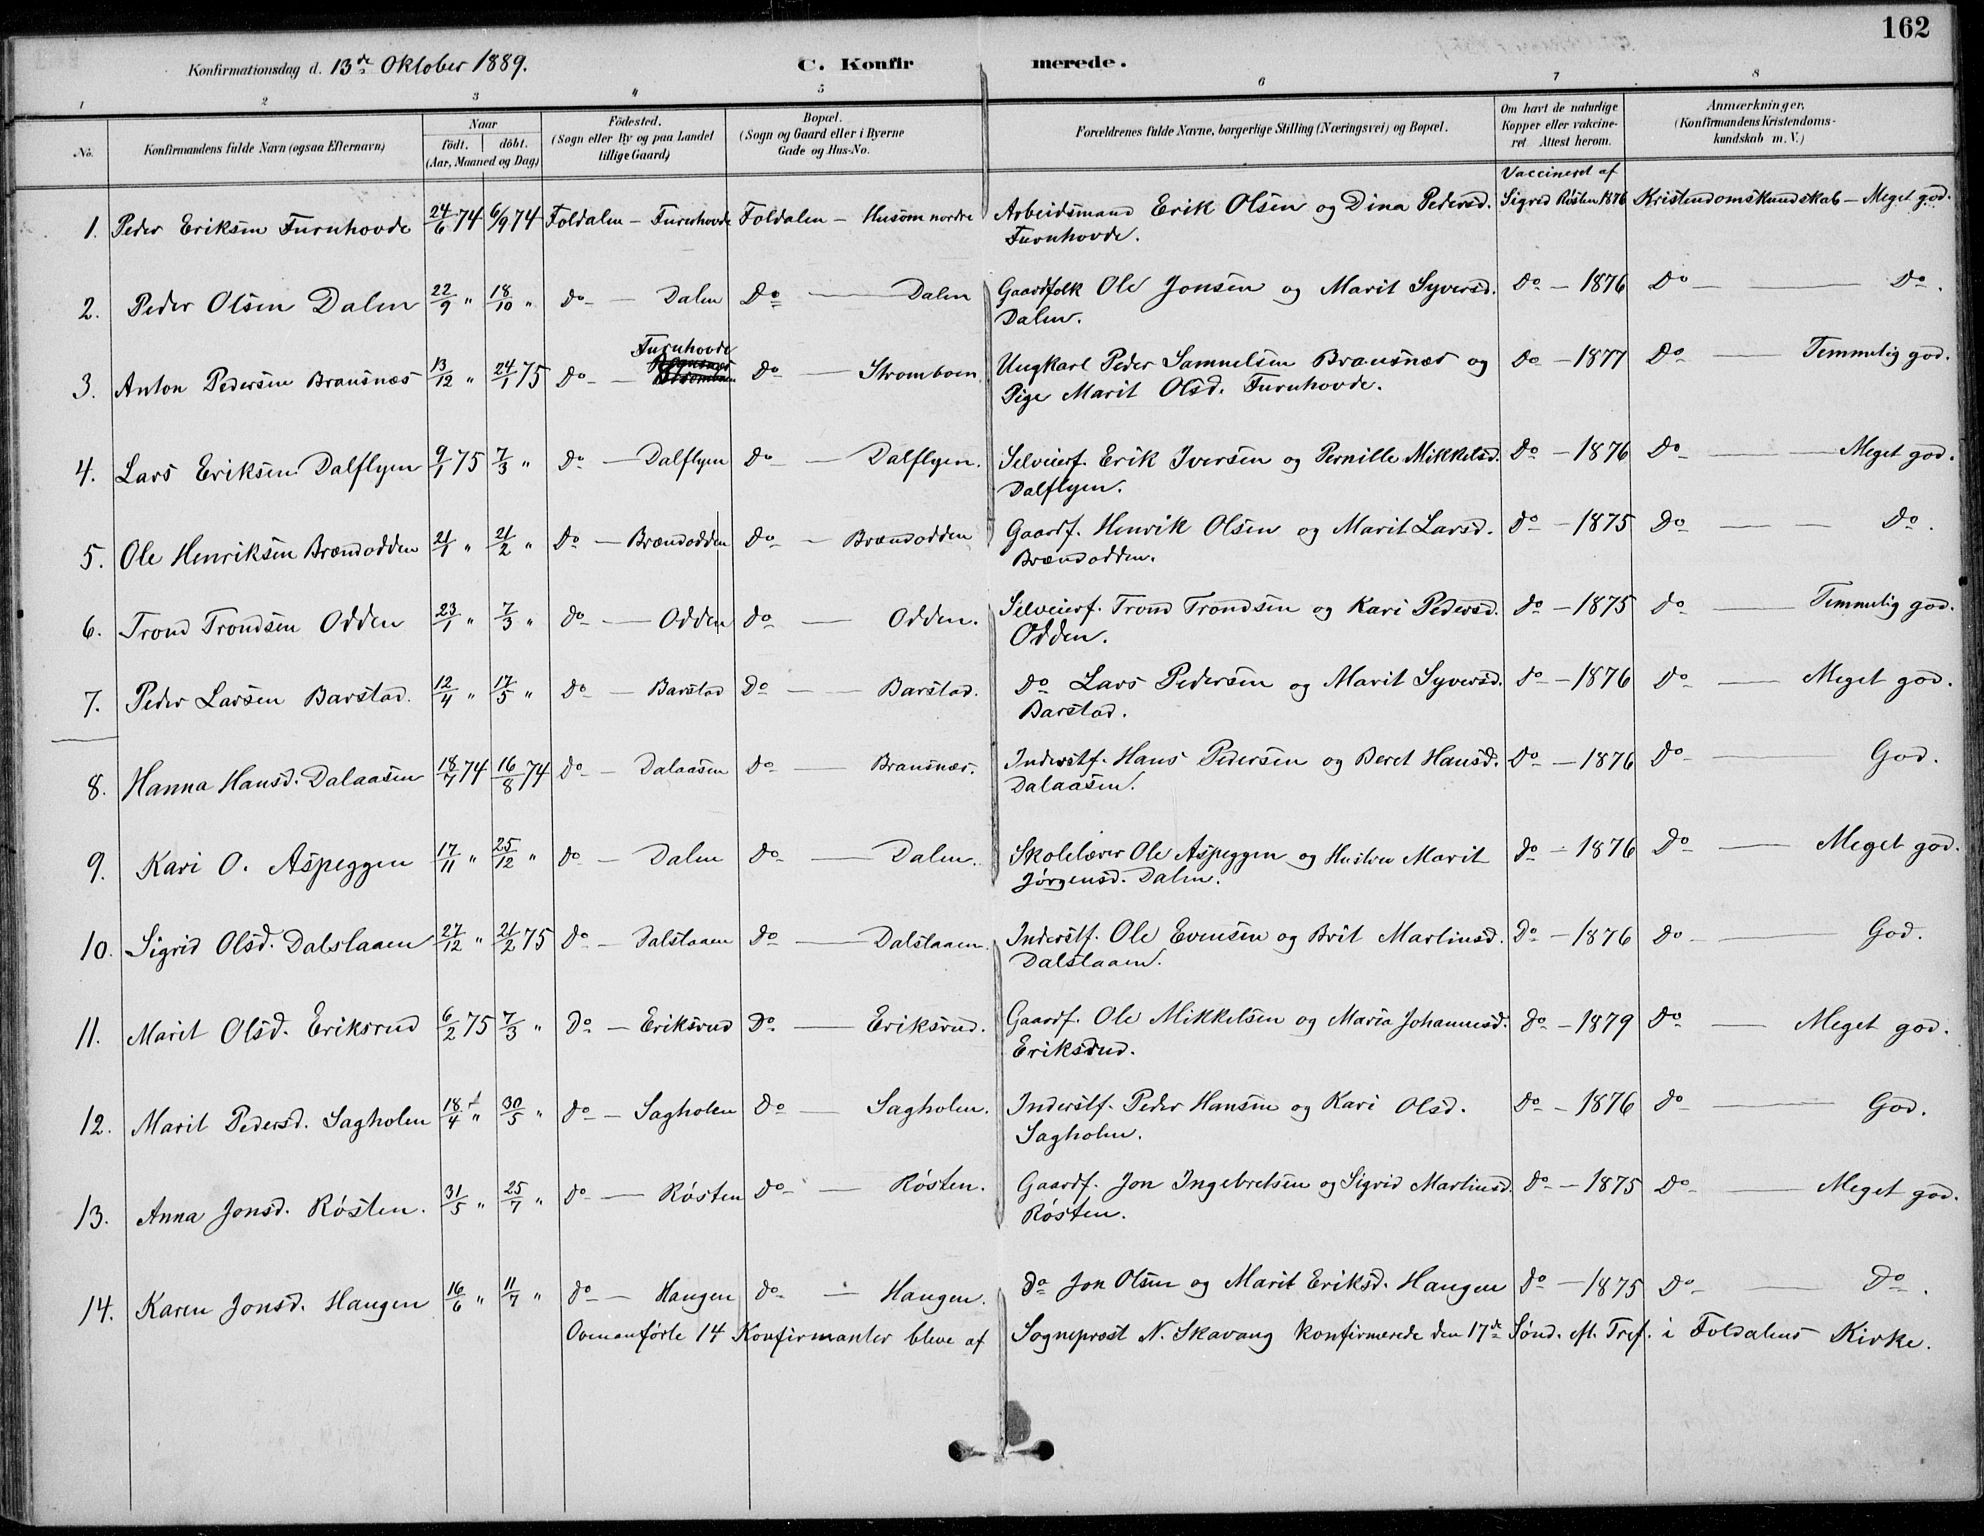 162
Konfirmationsdag d. 13de Oktober 1889. C. Konfirmerede.
1 2 3 4 5 6 7 8
No. Konfirmandens fulde Navn (ogsaa Efternavn) Naar födt. döbt. (Aar, Maaned og Dag) Födested. (Sogn eller By og paa Landet tillige Gaard) Bopæl. (Sogn og Gaard eller i Byerne Gade og Hus-No. Forældrenes fulde Navne, borgerlige Stilling (Næringsvei) og Bopæl. Om havt de naturlige Kopper eller vakcineret. Attest herom. Anmærkninger. (Konfirmandens Kristendomskundskab m. V.)
Vaccineret af
1. Peder Eriksen Furuhovde 24/6 74 6/9 74 Foldalen – Furuhovde Foldalen – Husom nordre Arbeidsmand Erik Olsen og Dina Pedersd. Sigrid Røsten 1876 Kristendomskundskab – Meget god.
Furuhovde.
2. Peder Olsen Dalen 22/9 " 18/10 " do – Dalen Do – Dalen Gaardfolk Ole Jonsen og Marit Syversd. Do – 1876 Do – Do.
Dalen.
Furuhovde
3. Anton Pedersen Bransnæs 13/12 " 24/1 75 Do – do – Stromboen. Ungkarl Peder Samuelsen Bransnæs og do – 1877 Do – Temmelig god.
Pige Marit Olsd. Furuhovde.
4. Lars Eriksen Dalflyen 9/1 75 7/3 " do – Dalflyen do – Dalflyen. Selveierf. Erik Iversen og Pernille Mikkelsd. Do – 1876 Do – Meget god.
Dalflyen.
5. Ole Henriksen Brændodden 21/1 " 21/2 " Do – Brændodden do – Brændodden Gaardf. Henrik Olsen og Marit Larsd. do – 1875 Do – Do.
Brændodden.
6. Trond Trondsen Odden 23/1 " 7/3 " do – Odden do – Odden. Selveierf. Trond Trondsen og Kari Pedersd. do – 1875 do – Temmelig god.
Odden.
7. Peder Larsen Barstad. 12/4 " 17/5 " do – Barstad Do – Barstad. Do Lars Pedersen og Marit Syversd. do – 1876 do – Meget god.
Barstad.
8. Hanna Hansd. Dalaasen 18/7 74 16/8 74 do – Dalaasen do – Bransnæs. Inderstf. Hans Pedersen og Beret Hansd. Do – 1876 Do – God.
Dalaasen.
9. Kari O. Aspeggen 17/11 " 25/12 " do – Dalen do – Dalen. Skolelærer Ole Aspeggen og Hustru Marit do – 1876 Do – Meget god.
Jørgensd. Dalen.
10. Sigrid Olsd. Dalslaaen 27/12 " 21/2 75 do – Dalslaaen do – Dalslaaen. Inderstf. Ole Evensen og Brit Martinsd. Do – 1876 do – God.
Dalslaaen.
11. Marit Olsd. Eriksrud 6/2 75 7/3 " Do – Eriksrud Do – Eriksrud. Gaardf. Ole Mikkelsen og Maria Johannesd. do – 1879 do – Meget god.
Eriksrud.
12. Marit Pedersd. Sagholen 18/4 " 30/5 " do – Sagholen do – Sagholen. Inderstf. Peder Hansen og Kari Olsd. do – 1876 do – God.
Sagholen.
13. Anna Jonsd. Røsten. 31/5 " 25/7 " do – Røsten do – Røsten. Gaardf. Jon Ingebretsen og Sigrid Martinsd. do – 1875 Do – Meget god.
Røsten.
14. Karen Jonsd. Haugen 16/6 " 11/7 " do – Haugen do – Haugen. do Jon Olsen og Marit Eriksd. Haugen do – 1875 Do – Do.
Ovenanførte 14 Konfirmanter bleve af Sogneprost N. Skavang konfirmerede den 17de Sønd. eft. Tref. i Foldalens Kirke.